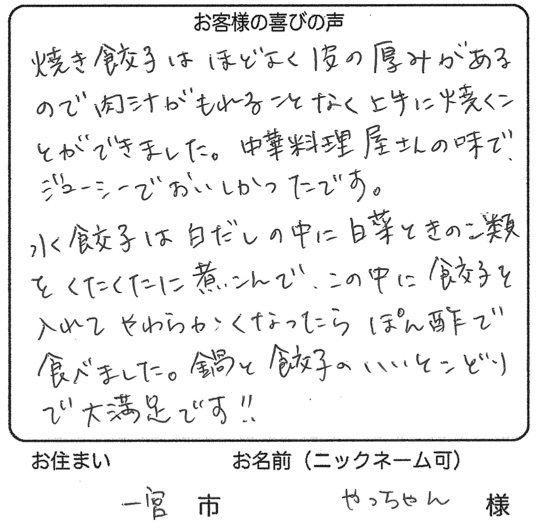 お客様の喜びの声
焼き餃子はほどよく皮の厚みがある
ので肉汁がもれることなく上手に焼くこ
とができました。中華料理屋さんの味で、
ジューシーでおいしかったです。
水餃子は白だしの中に白菜ときのこ類
をくたくたに煮こんで、この中に餃子を
入れてやわらかくなったらぽん酢で
食べました。鍋と餃子のいいとこどり
で大満足です!!
お住まい お名前（ニックネーム可）
一宮 市 やっちゃん 様